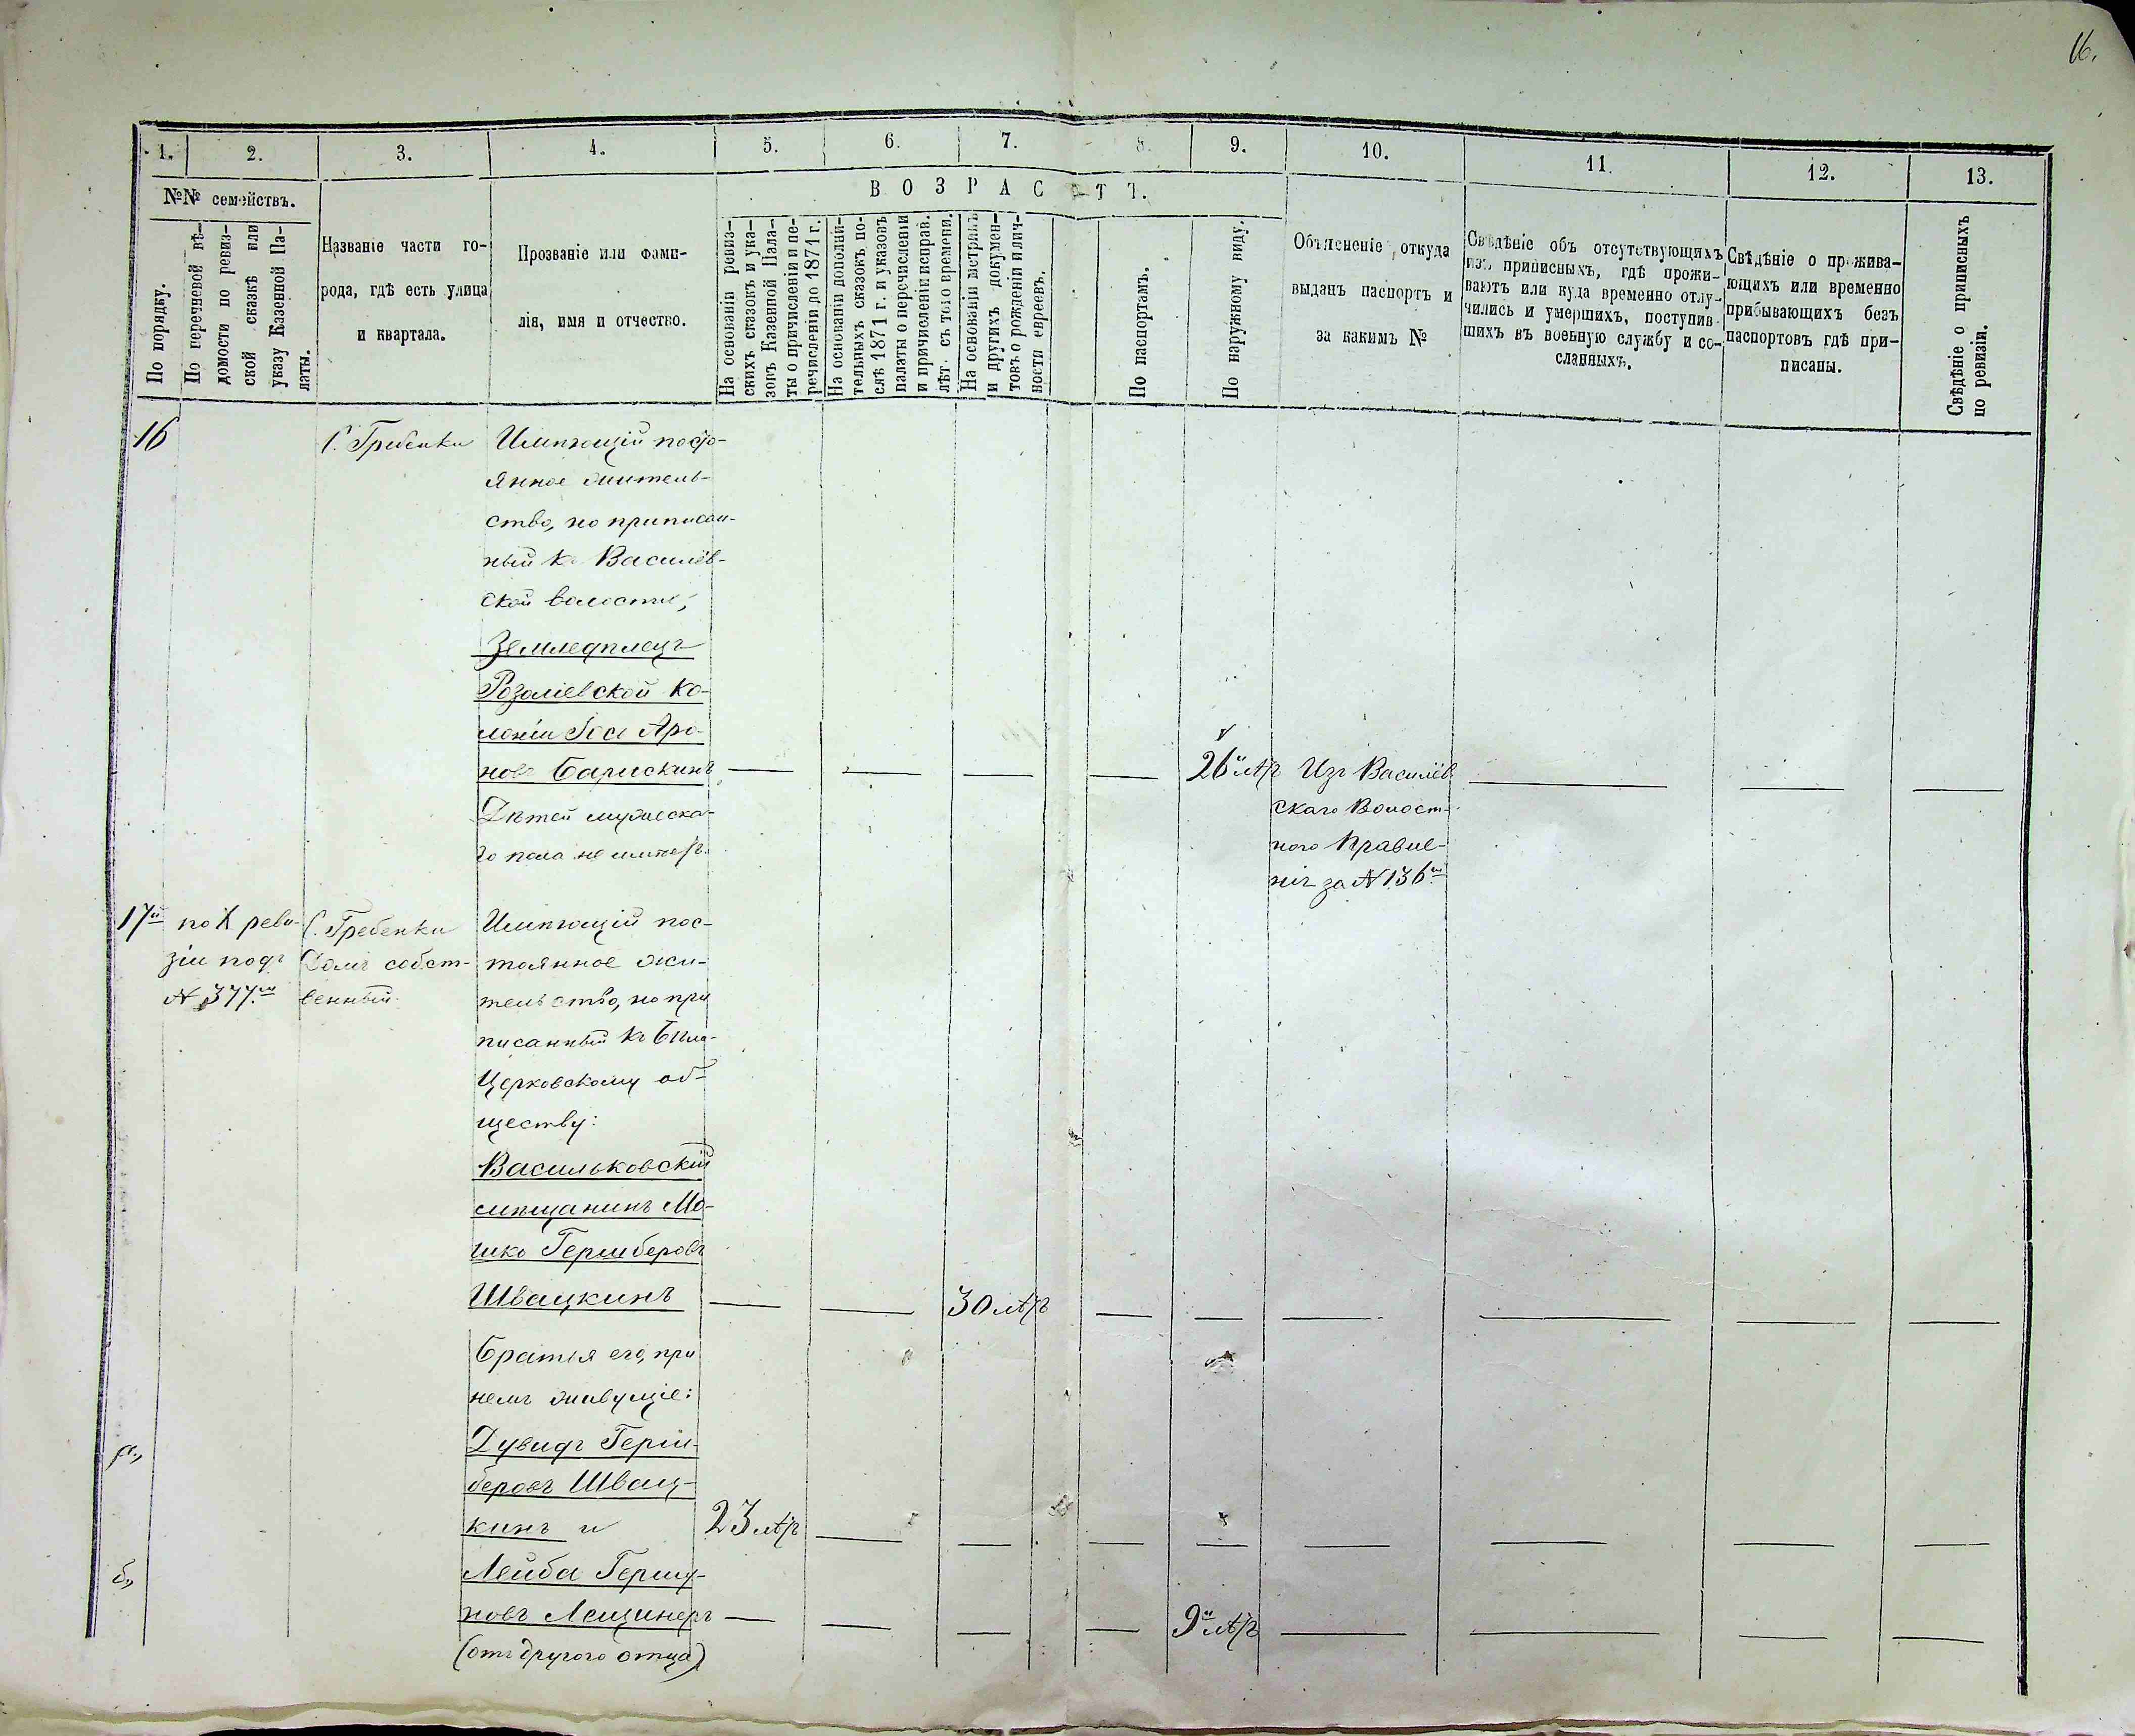 16.
1. 2. 3. 4. 5. 6. 7. 8. 9. 10. 11. 12. 13.
№№ семействъ.
В О З Р А С Т Ъ.
По порядку.
По перечневой вѣ-
домости по ревиз-
ской сказкѣ или
указу Казенной Па-
латы.
Названіе части го-
рода, гдѣ есть улица
и квартала.
Прозваніе или фами-
лія, имя и отчество.
На основаніи ревиз-
скихъ сказокъ и ука-
зовъ Казенной Пала-
ты о причисленіи и пе-
речисленіи до 1871 г.
На основаніи дополни-
тельныхъ сказокъ по-
слѣ 1871 г. и указовъ
палаты о перечисленіи
и причисленіи исправ.
лѣт. съ того времени.
На основаніи метрикъ
и другихъ докумен-
товъ о рожденіи и лич-
ности евреевъ.
По паспортамъ.
По наружному виду.
Объясненіе откуда
выданъ паспортъ и
за какимъ №
Свѣдѣніе объ отсутствующихъ
изъ приписныхъ, гдѣ прожи-
ваютъ или куда временно отлу-
чились и умершихъ, поступив-
шихъ въ военную службу и со-
сланныхъ.
Свѣдѣніе о прожива-
ющихъ или временно
прибывающихъ безъ
паспортовъ гдѣ при-
писаны.
Свѣдѣніе о приписныхъ
по ревизіи.
16
С. Гребенки
Имѣющій посто-
янное житель-
ство, но приписан-
ный къ Василёв-
ской волости,
Земледѣлецъ
Розаліевской ко-
лоніи Іось Аро-
новъ Барискинъ
26 лѣтъ
Дѣтей мужеска-
го пола не имѣетъ.
Изъ Василёв-
скаго Волост-
ного Правле-
нія за № 136
17й
по X реви-
зіи подъ
№ 377
С. Гребенки
Домъ собст-
венный.
Имѣющій пос-
тоянное жи-
тельство, но при
писанный къ Бѣло-
Церковскому об-
ществу:
Васильковскій
мѣщанинъ Мо-
шко Гершберовъ
Швацкинъ
30 лѣтъ
Братья его, при
немъ живущіе:
а,,
Дувидъ Герш-
беровъ Швац-
кинъ и
23 лѣтъ
б,,
Лейба Гершу-
новъ Лещинеръ
9 лѣтъ
(отъ другого отца)